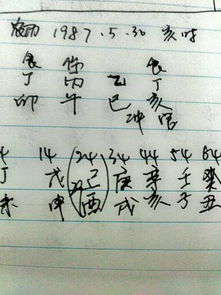 农历 1987.5.30 亥时
食 伤 食
丁 丙 乙 丁
卯 午 巳 亥
冲
4 14 24 34 44 54 64
丁 戊 己 庚 辛 壬 癸
未 申 酉 戌 亥 子 丑